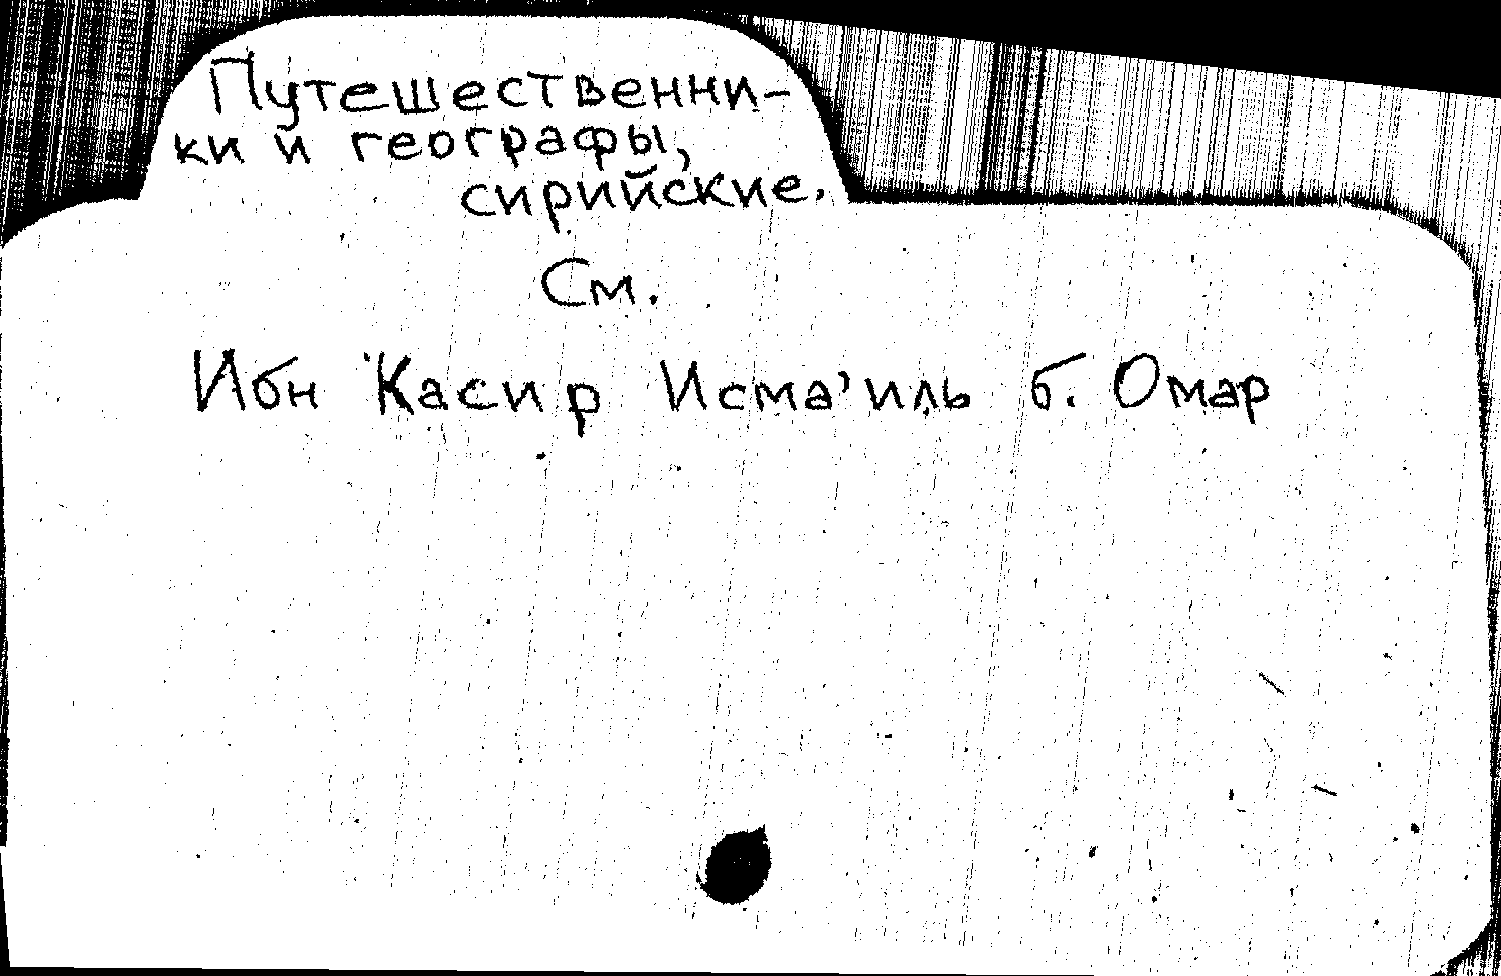 Путешественни-
ки и географы,
сирийские.
См.
Ибн Касир Исма'иль б. Омар